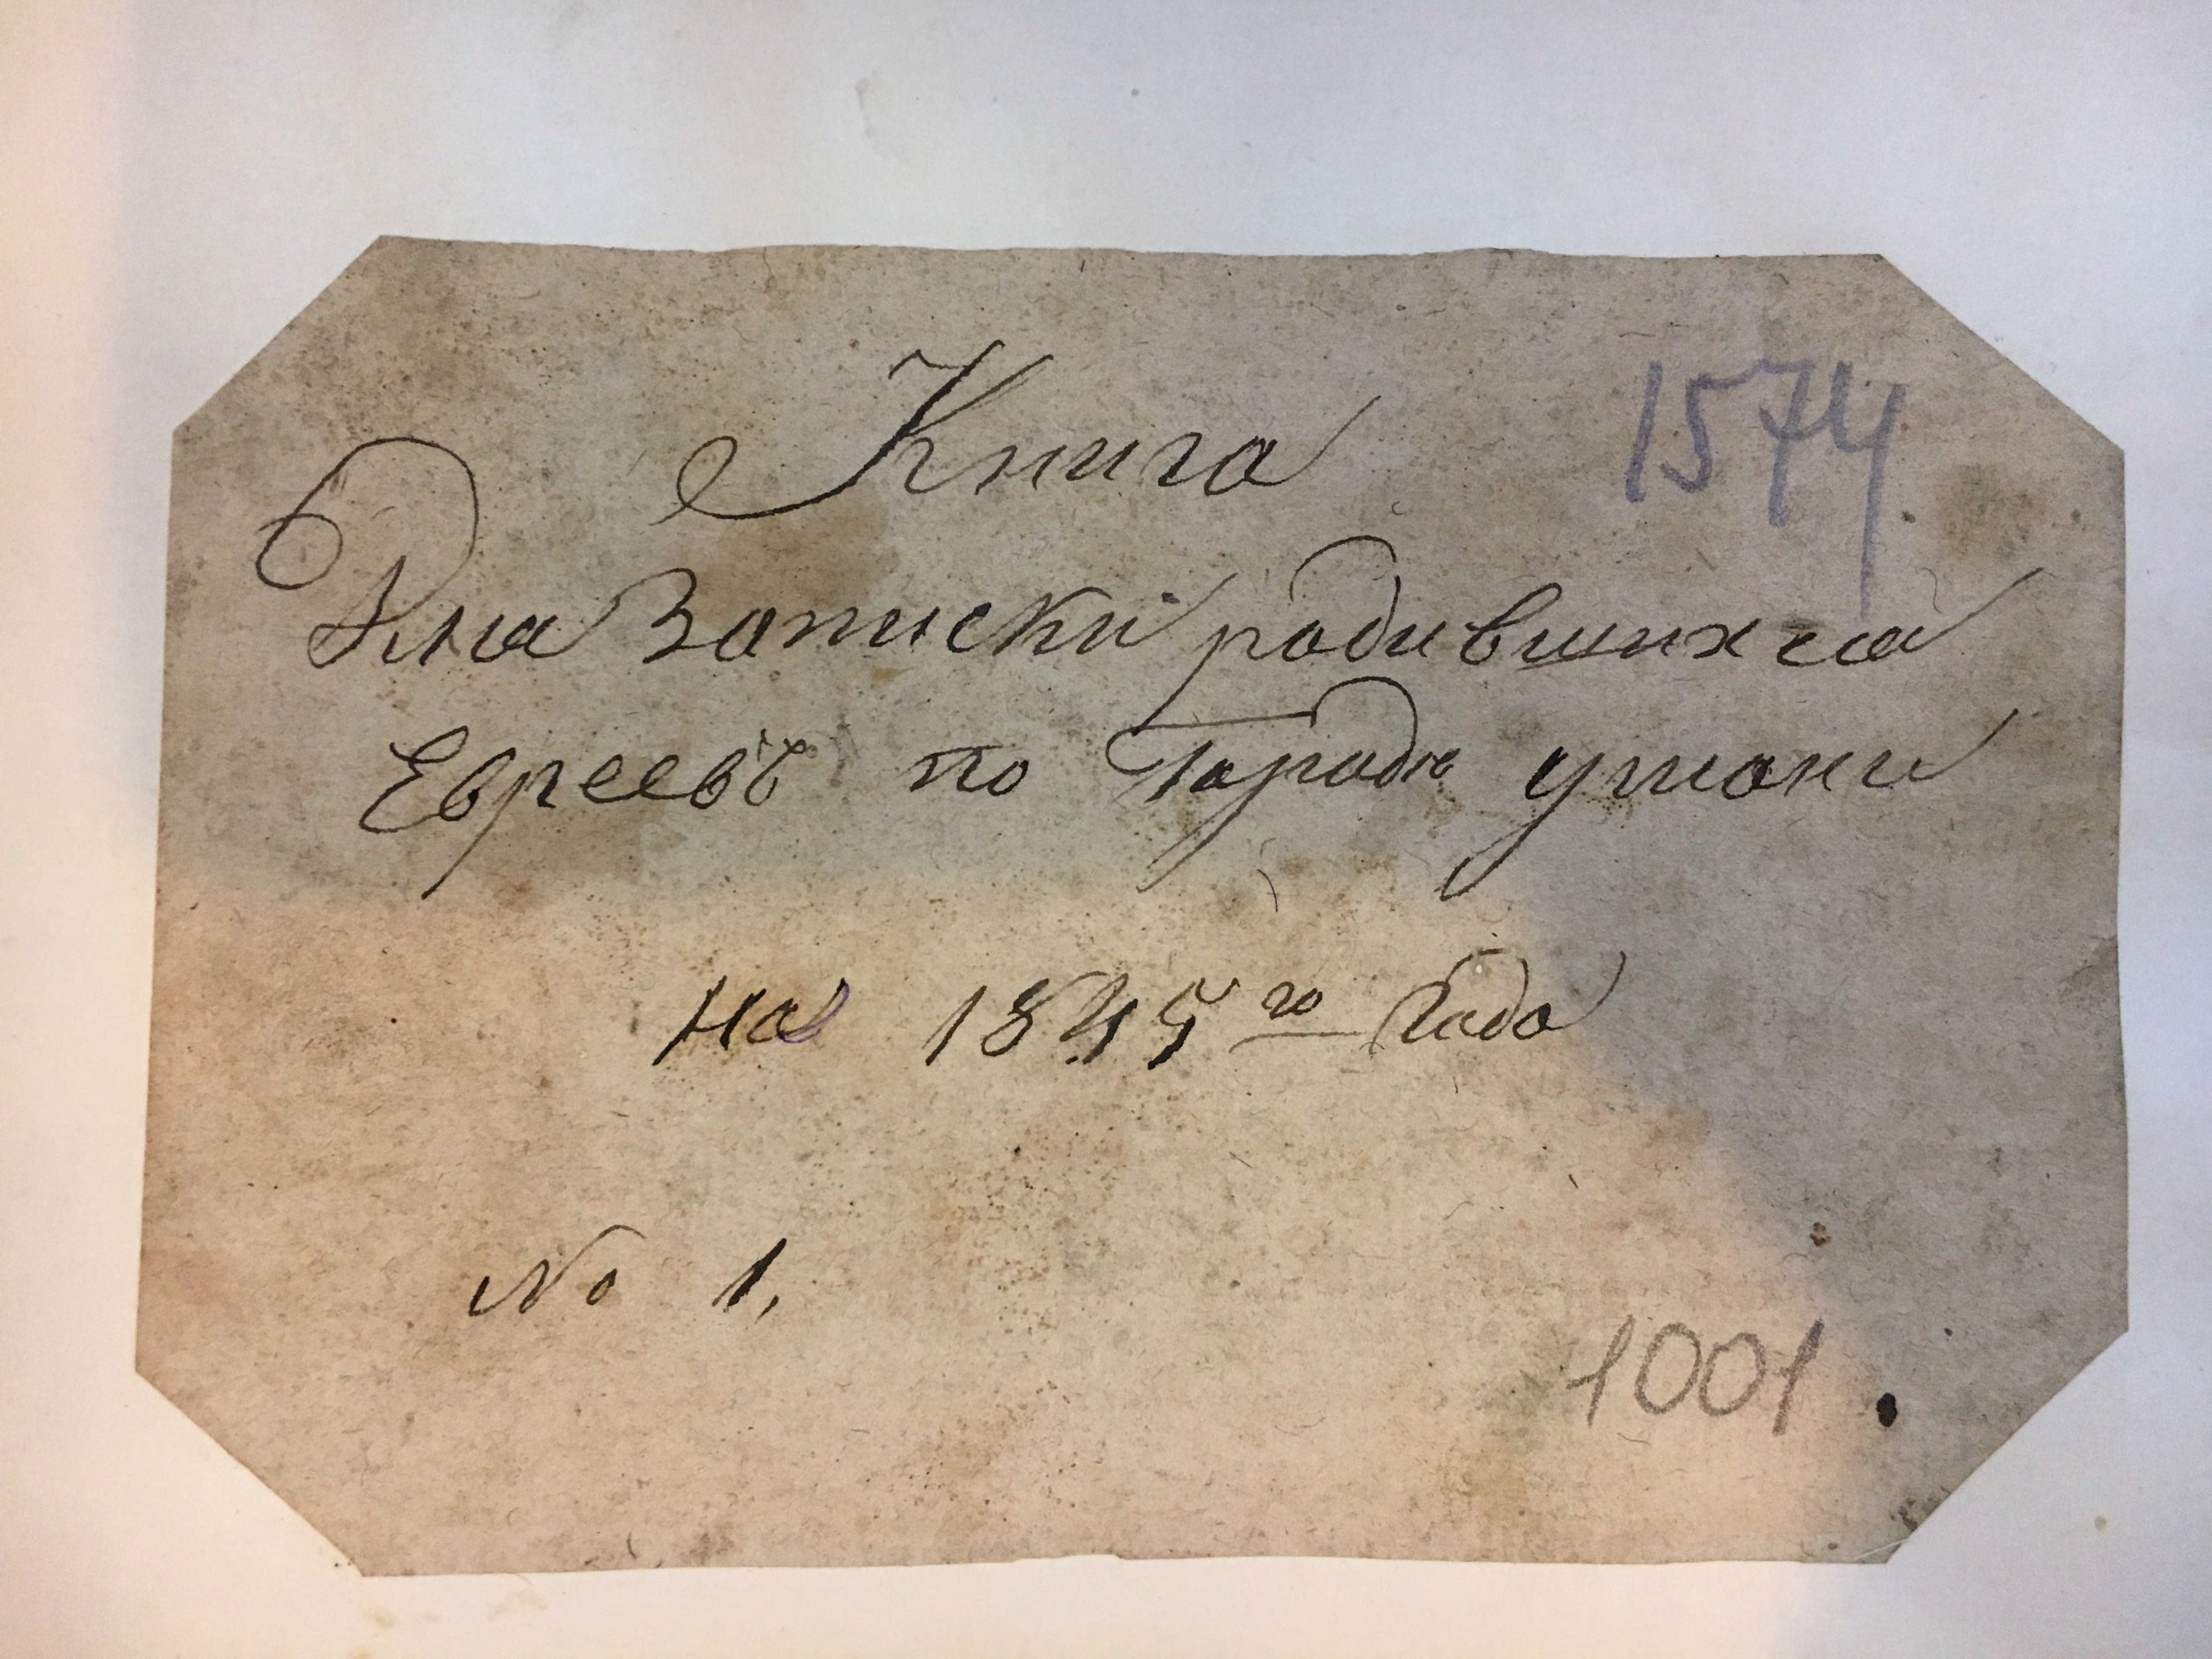 Книга
1574
Для Записки родившихся
Евреевъ по Городу умани
на 1845го Года
No 1,
1001.